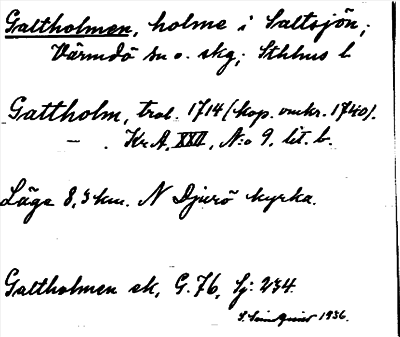 Galtholmen, holme i Saltsjön;
Värmdö sn o. skg; Sthlms l.
Galtholm, trol. 1714 (kop. omkr. 1740).
— . Kr A, XXII, N:o 9, lit. b.
Läge 8,3 km. N Djurö kyrka.
Galtholmen ek, G. 76, Sj: 234.
S. 1936.